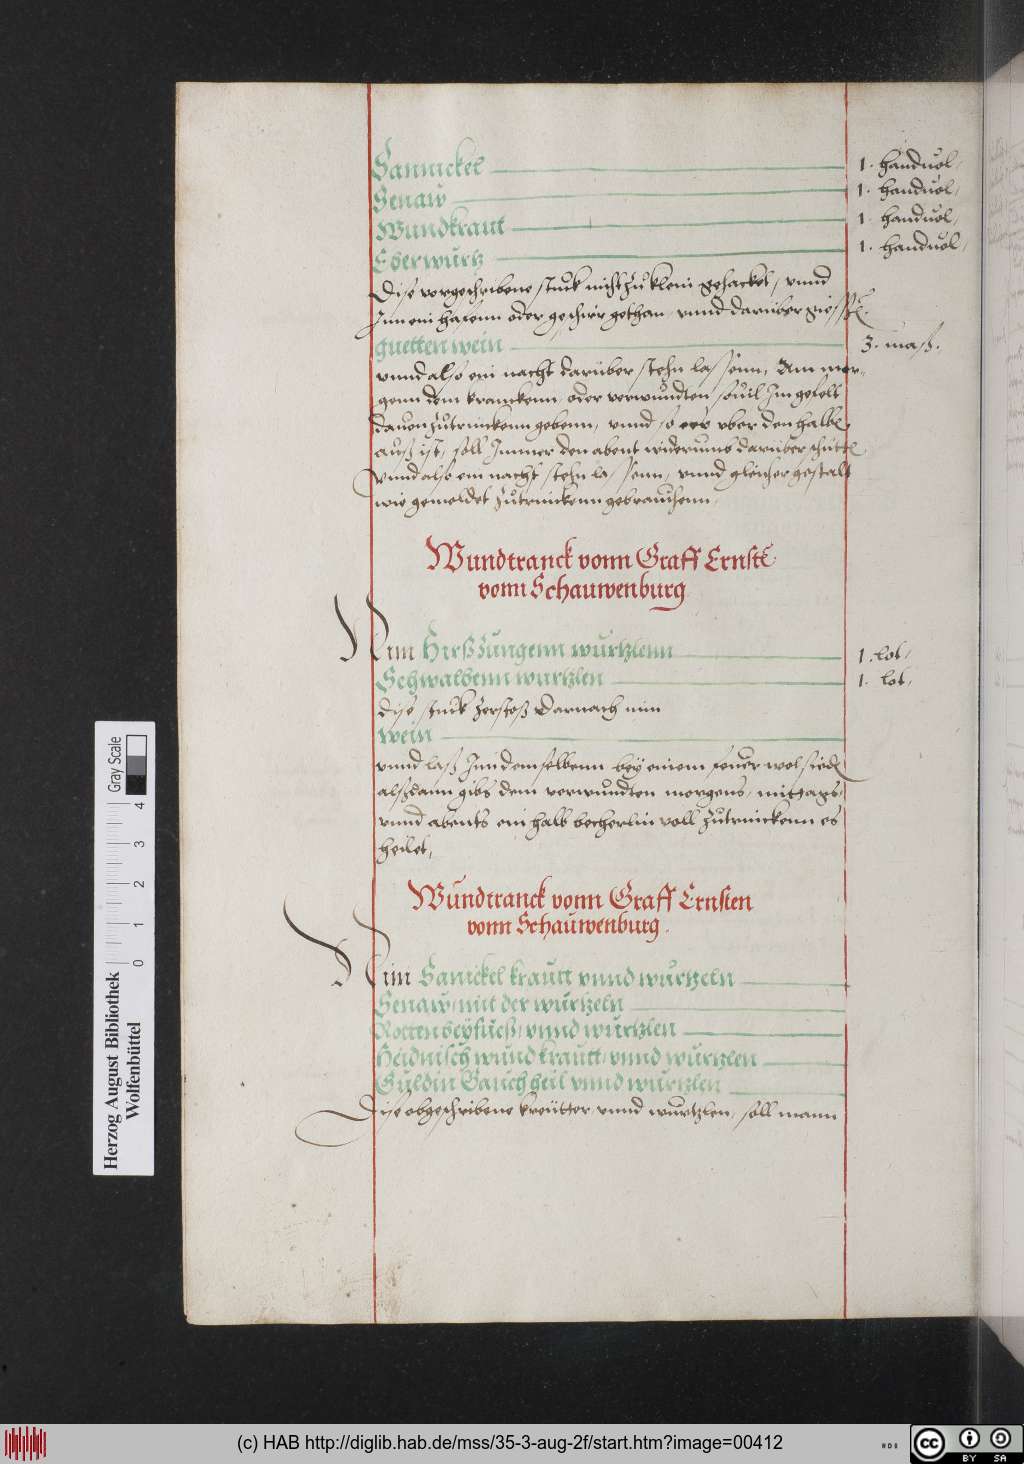 Sannickel 1. handuol
Senaw 1. handuol
Wundkraut 1. handuol
Eberwurtz 1. handuol
Dise vorgeschribene stuck nicht zu klein gehacket, vnnd
Inn ein hafenn oder geschirr gethan, vnnd darüber
guetten wein 3. maß.
vnnd also ein nacht darüber stehn lassenn, Am mor-
genn dem kranckenn, oder verwundten souil Im gefelt
dauon zutrinckenn gebenn, vnnd so er vber den halben
auß ist, soll Immer den abent widerumb darüber schütten
vnnd also ein nacht stehn lassenn, vnnd gleicher gestalt
wie gemeldet zutrinckenn gebrauchenn,
Wundtranck vonn Graff Ernstē
vonn Schauwenburg.
Nim Hirßzungenn wurtzlenn 1. lot,
Schwalbenn wurtzlen 1. lot,
dise stuck zerstoß Darnach nim
wein
vnnd laß Inn demselbenn bey einem feuer wol sieden
alßdann gibs dem verwundten morgens, mittags,
vnnd abents ein halb becherlin voll zutrinckenn es
heilet,
Wundtranck vonn Graff Ernsten
vonn Schauwenburg.
Nim Sanickel krautt vnnd wurtzeln
Senaw mit der wurtzeln
Rotten beyfueß, vnnd wurtzlen
Heidnisch wundkrautt, vnnd wurtzlen
Guldin Gauchheil vnnd wurtzlen
Dise obgeschribene kreütter vnnd wurtzlen, soll mann
Herzog August Bibliothek
Wolfenbüttel
0 1 2 3 4
Gray Scale
(c) HAB http://diglib.hab.de/mss/35-3-aug-2f/start.htm?image=00412
cc BY SA